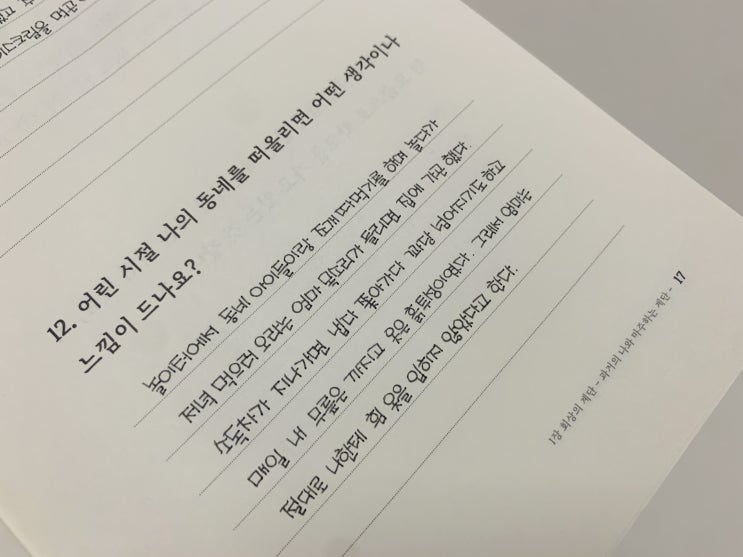 12. 어린 시절 나의 동네를 떠올리면 어떤 생각이나
느낌이 드나요?
놀이터에서 동네 아이들이랑 모래따먹기를 하며 놀다가
저녁 먹으러 오라는 엄마 목소리가 들리면 집에 가곤 했다.
소독차가 지나가면 냅다 쫓아가다 담벼락 넘어다니기도 하고
매일 내 무릎은 까지고 옷은 흙투성이었다. 그래서 엄마는
절대로 나한테 흰 옷을 입히지 않았다고 한다.
1장 회상의 계단 - 과거의 나와 마주하는 계단 - 17